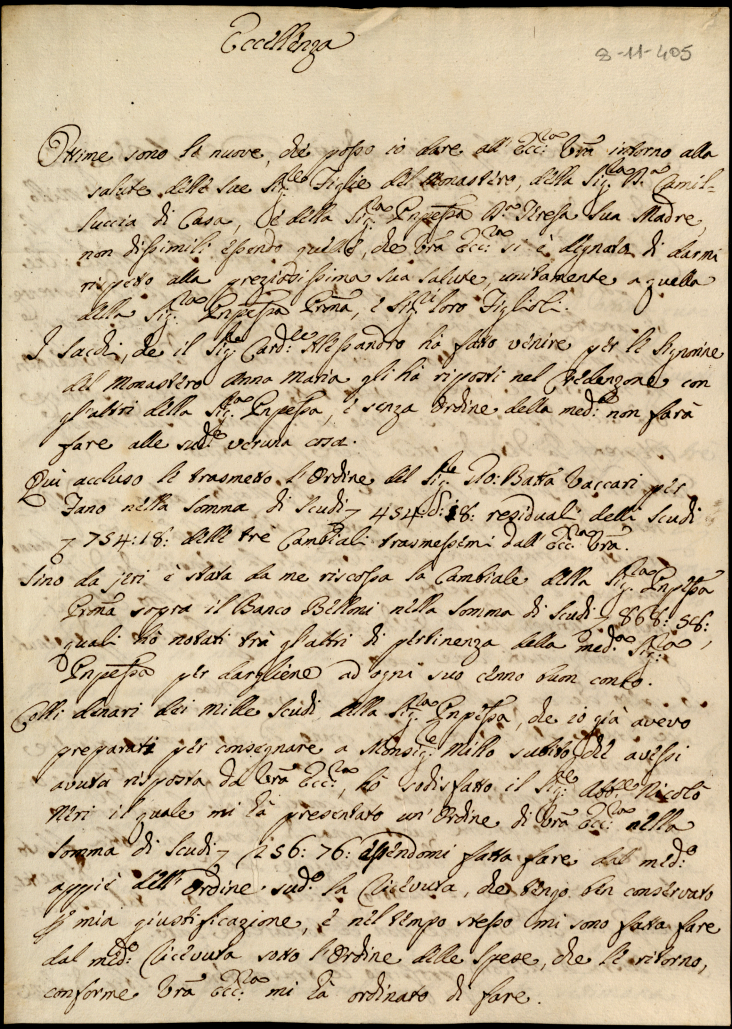 Eccellenza
8-11-405
Ottime sono le nuove, che posso io dare all'Ecc.za Vrã intorno alla
salute delle sue Sig.re Figlie del Monastero, della Sig.ra D.a Camil-
luccia di Casa, e della Sig.ra Pnpessa D.a Teresa Sua Madre,
non dissimili essendo quelle, che Vrã Ecc.za si è degnata di darmi
rispetto alla preziosissima sua salute, unitamente a quella
della Sig.ra Pnpessa Pronã, e Sig.ri loro Figlioli.
I sacchi, che il Sig.r Card.le Alessandro ha fatto venire per le Signorine
del Monastero Anna Maria gli hà riposti nel Credenzone con
gl'altri della Sig.ra Pnpessa, e senza Ordine della med.a non farà
fare alle sud.e veruna cosa.
Quì accluso le trasmetto l'Ordine del Sig.re Gio: Battã Vaccari per
Fano nella somma di Scudi 454: 18: residuali delli Scudi
754:18: delle trè Cambiali trasmessemi dall'Ecc.za Vrã.
Sino da jeri è stata da me riscossa la Cambiale della Sig.ra Pnpessa
Pronã sopra il Banco Belloni nella somma di Scudi 868: 58:,
quali hò notati trà gl'altri di pertinenza della med.a Sig.ra
Pnpessa per dargliene ad ogni suo cenno buon conto.
Colli denari dei mille Scudi della Sig.ra Pnpessa, che io già avevo
preparati per consegnare a Monsig.re Millo subito, che avessi
avuta risposta da Vrã Ecc.za, hò sodisfatto il Sig.re Abb.e Nicolò
Neri il quale mi hà presentato un'Ordine di Vrã Ecc.za nella
somma di Scudi 256: 76: essendomi fatta fare dal med.o
appiè dell'Ordine sud.o la Ricevuta, che tengo ben conservata
p mia giustificazione, e nel tempo stesso mi sono fatta fare
dal med.o Ricevuta sotto l'Ordine delle Spese, che le ritorno,
conforme Vrã Ecc.za mi hà ordinato di fare.